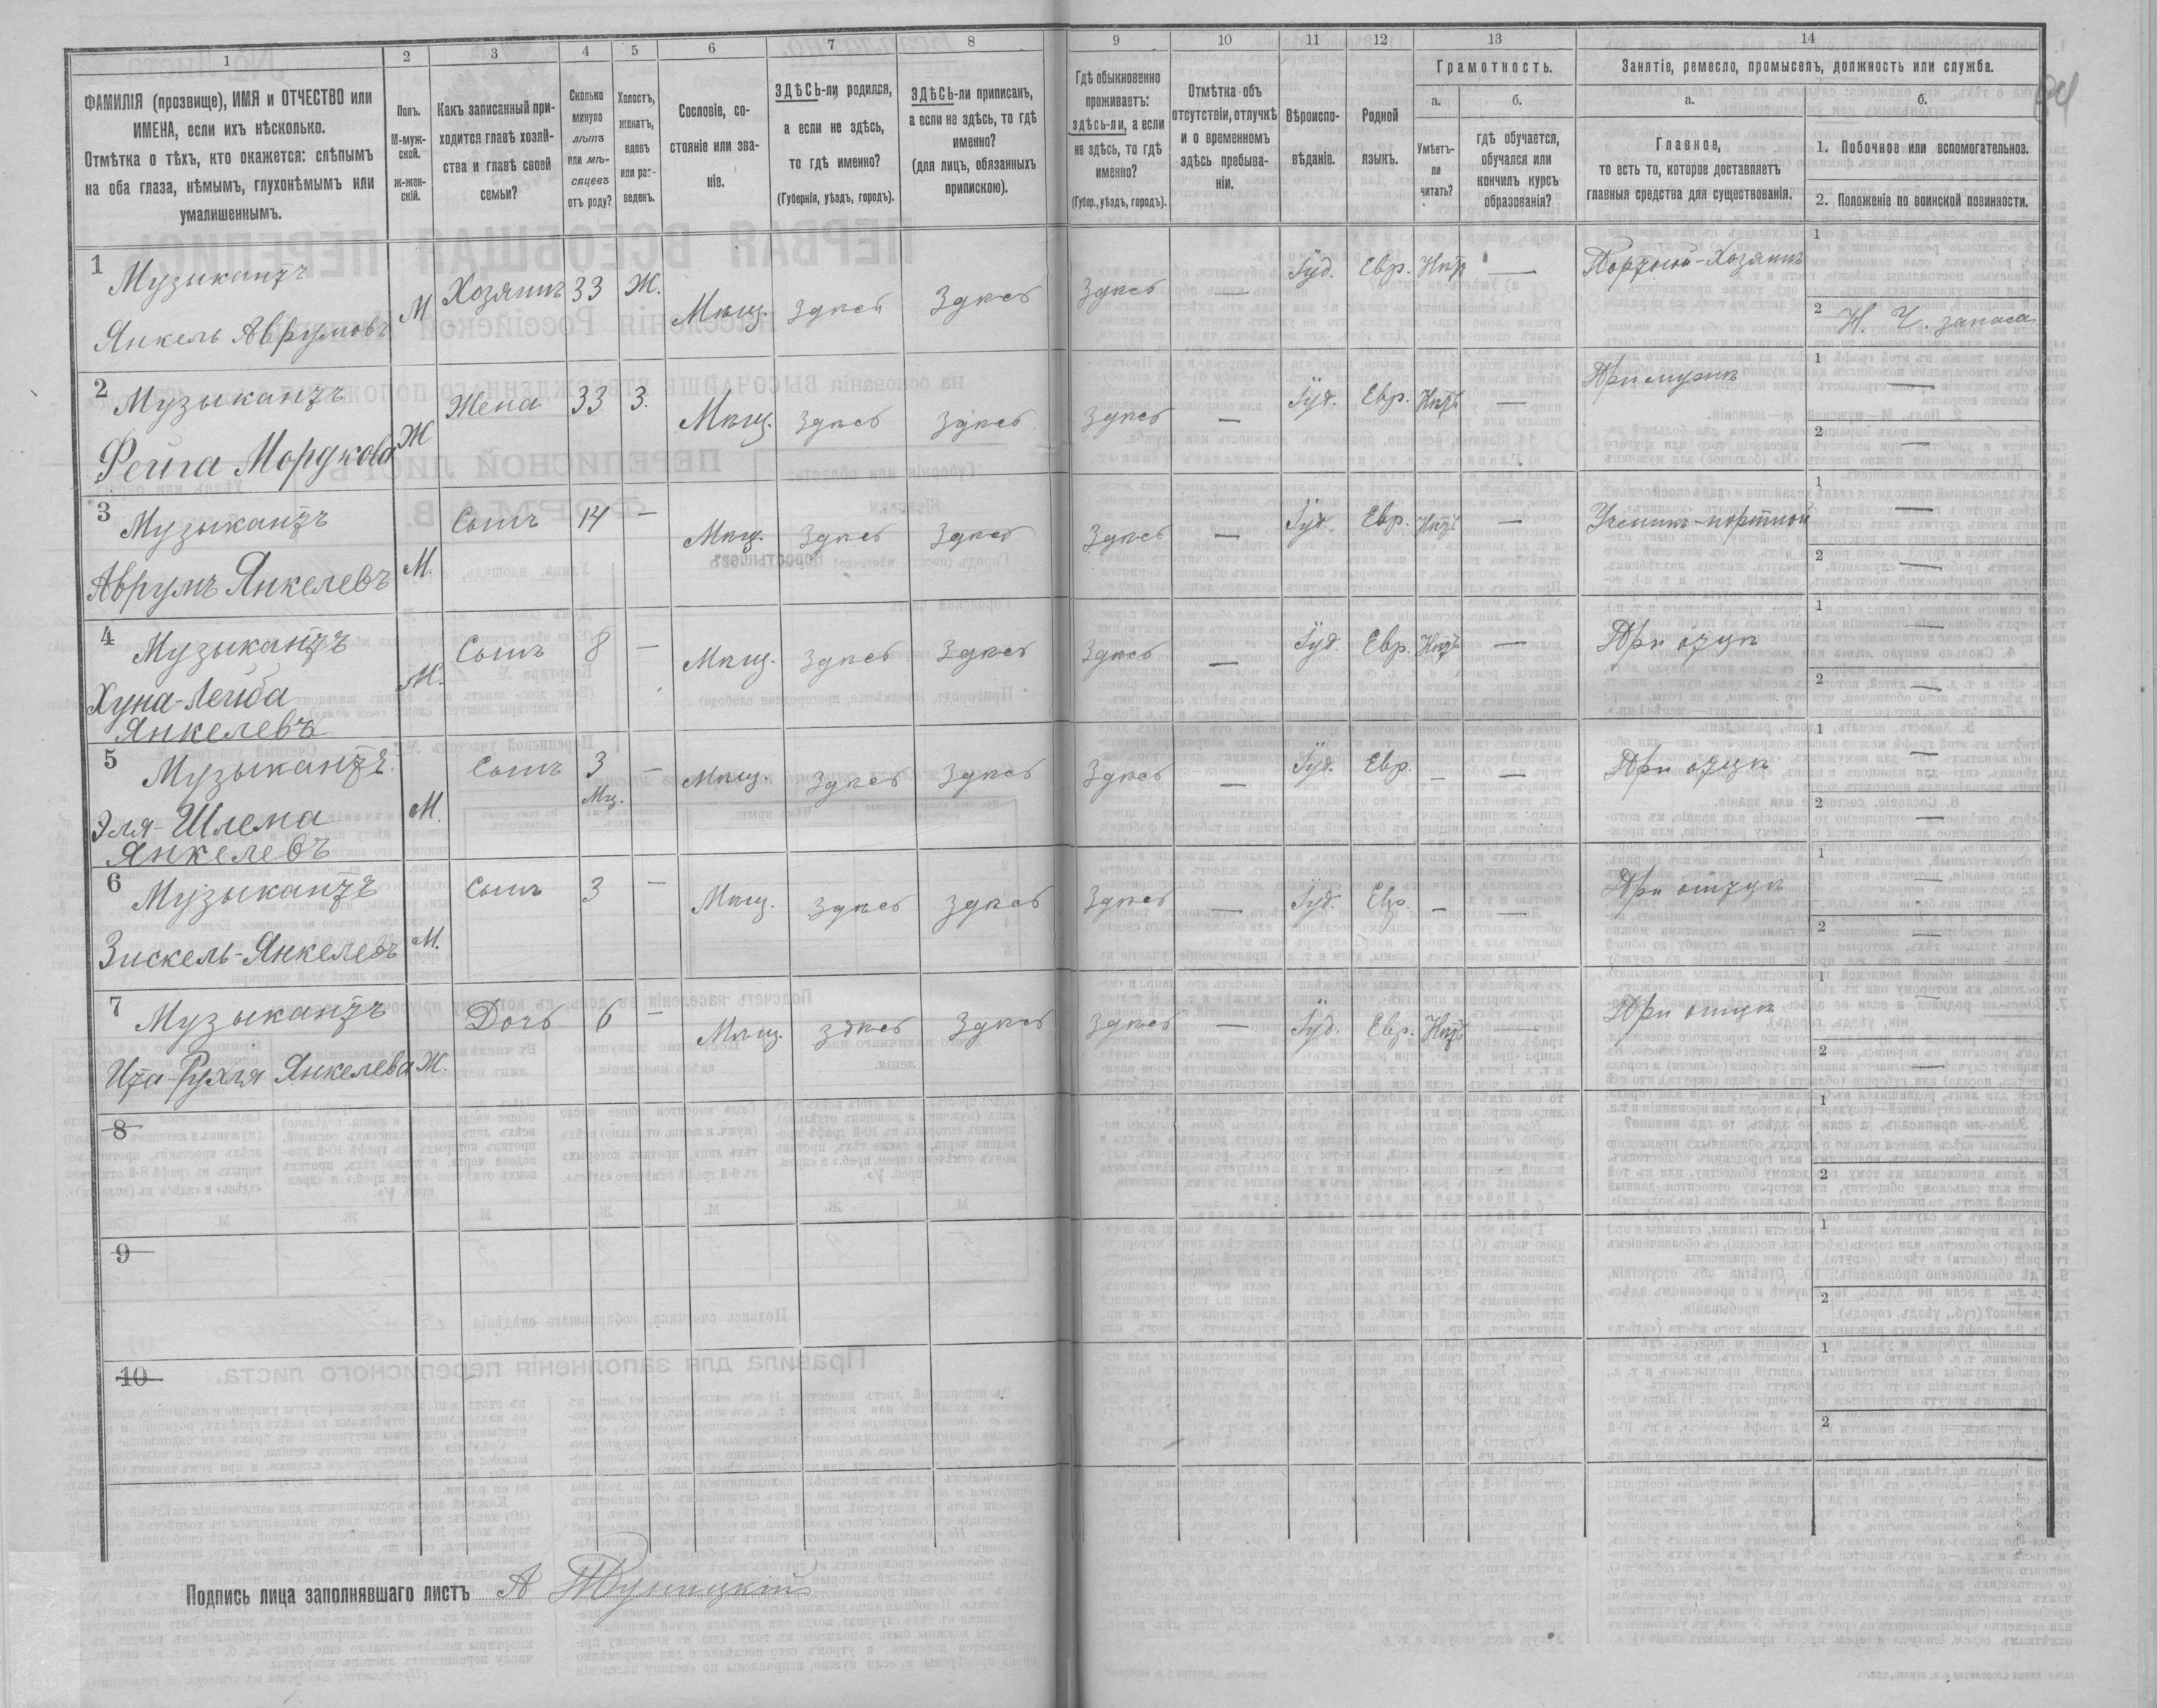 1 2 3 4 5 6 7 8 9 10 11 12 13 14
ФАМИЛІЯ (прозвище), ИМЯ и ОТЧЕСТВО или
ИМЕНА, если ихъ нѣсколько.
Отмѣтка о тѣхъ, кто окажется: слѣпымъ
на оба глаза, нѣмымъ, глухонѣмымъ или
умалишеннымъ.
Полъ.
М-муж-
ской.
ж-жен-
скій.
Какъ записанный при-
ходится главѣ хозяй-
ства и главѣ своей
семьи?
Сколько
минуло
лѣтъ
или мѣ-
сяцевъ
отъ роду?
Холостъ,
женатъ,
вдовъ
или раз-
веденъ.
Сословіе, со-
стояніе или зва-
ніе.
ЗДѢСЬ-ли родился,
а если не здѣсь,
то гдѣ именно?
(Губернія, уѣздъ, городъ).
ЗДѢСЬ-ли приписанъ,
а если не здѣсь, то гдѣ
именно?
(для лицъ, обязанныхъ
припискою).
Гдѣ обыкновенно
проживаетъ:
здѣсь-ли, а если
не здѣсь, то гдѣ
именно?
(Губер., уѣздъ, городъ).
Отмѣтка объ
отсутствіи, отлучкѣ
и о временномъ
здѣсь пребыва-
ніи.
Вѣроиспо-
вѣданіе.
Родной
языкъ.
Грамотность.
а.
Умѣетъ-
ли
читать?
б.
гдѣ обучается,
обучался или
кончилъ курсъ
образованія?
Занятіе, ремесло, промыселъ, должность или служба.
а.
Главное,
то есть то, которое доставляетъ
главныя средства для существованія.
б.
1. Побочное или вспомогательное.
2. Положеніе по воинской повинности.
1 Музыкантъ
Янкель Аврумовъ
М Хозяинъ 33 Ж. Мѣщ. Здѣсь Здѣсь Здѣсь — Іуд. Евр. Нѣтъ — Портной-Хозяинъ
1
2 Н. Ч. запаса
2 Музыкантъ
Фейга Мордкова
Ж Жена 33 З. Мѣщ. Здѣсь Здѣсь Здѣсь — Іуд. Евр. Нѣтъ — При мужѣ
1 —
2 —
3 Музыкантъ
Аврумъ Янкелевъ
М. Сынъ 14 — Мѣщ. Здѣсь Здѣсь Здѣсь — Іуд. Евр. Нѣтъ — Ученикъ-портной
1 —
2 —
4 Музыкантъ
Хуна-Лейба
Янкелевъ
М. Сынъ 8 — Мѣщ. Здѣсь Здѣсь Здѣсь — Іуд. Евр. Нѣтъ — При отцѣ
1 —
2 —
5 Музыкантъ
Эля-Шлема
Янкелевъ
М. Сынъ 3 Мц. — Мѣщ. Здѣсь Здѣсь Здѣсь — Іуд. Евр. — — При отцѣ
1 —
2 —
6 Музыкантъ
Зискель-Янкелевъ
М. Сынъ 3 — Мѣщ. Здѣсь Здѣсь Здѣсь — Іуд. Евр. — — При отцѣ
1 —
2 —
7 Музыкантъ
Ита-Рухля Янкелева
Ж. Дочь 6 — Мѣщ. Здѣсь Здѣсь Здѣсь — Іуд. Евр. Нѣтъ — При отцѣ
1 —
2 —
8
1
2
9
1
2
10
1
2
Подпись лица заполнявшаго листъ А